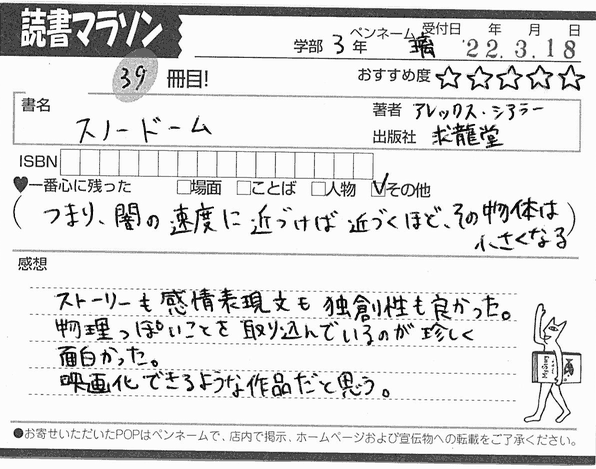 読書マラソン
学部 3 年 ペンネーム 璃 受付日 年 月 日
'22.3.18
39 冊目!
おすすめ度 ☆☆☆☆☆
書名 スノードーム
著者 アレックス・シアラー
出版社 求龍堂
ISBN
♥一番心に残った □場面 □ことば □人物 ☑その他
(つまり、闇の速度に近づけば近づくほど、その物体は
小さくなる)
感想
ストーリーも感情表現文も独創性も良かった。
物理っぽいことを取り込んでいるのが珍しく
面白かった。
映画化できるような作品だと思う。
●お寄せいただいたPOPはペンネームで、店内で掲示、ホームページおよび宣伝物への転載をご了承ください。